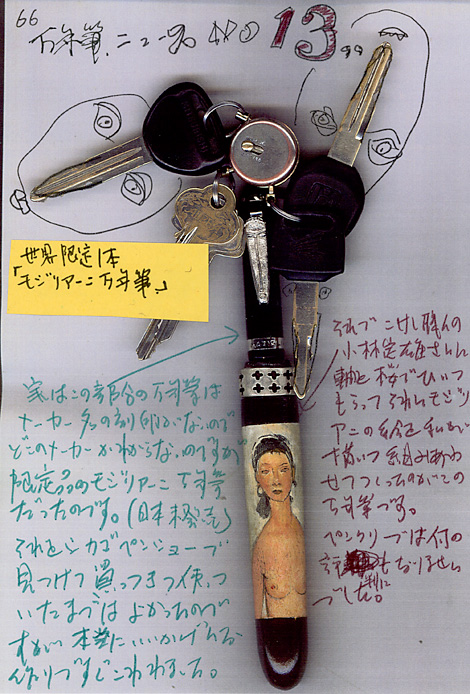 66
万年筆ニュース No 13
世界限定1本
「モジリアーニ万年筆」
実はこの部分の万年筆は
メーカー名の刻印がないので
どこのメーカーかわからないのですが
限定品のモジリアーニ万年筆
だったのです。(日本橋
それをシカゴペンショーで
見つけて買って使って
いたまではよかったので
すが 本当にいいかげんな
作りですぐこわれました。
それで こけし職人の
小林定雄さんに
軸を桜でひいて
もらって それにモジリ
アニの絵を私が
描いて組みあわ
せてつくったのがこの
万年筆です。
ペンクリップは時の
なりません
でした。